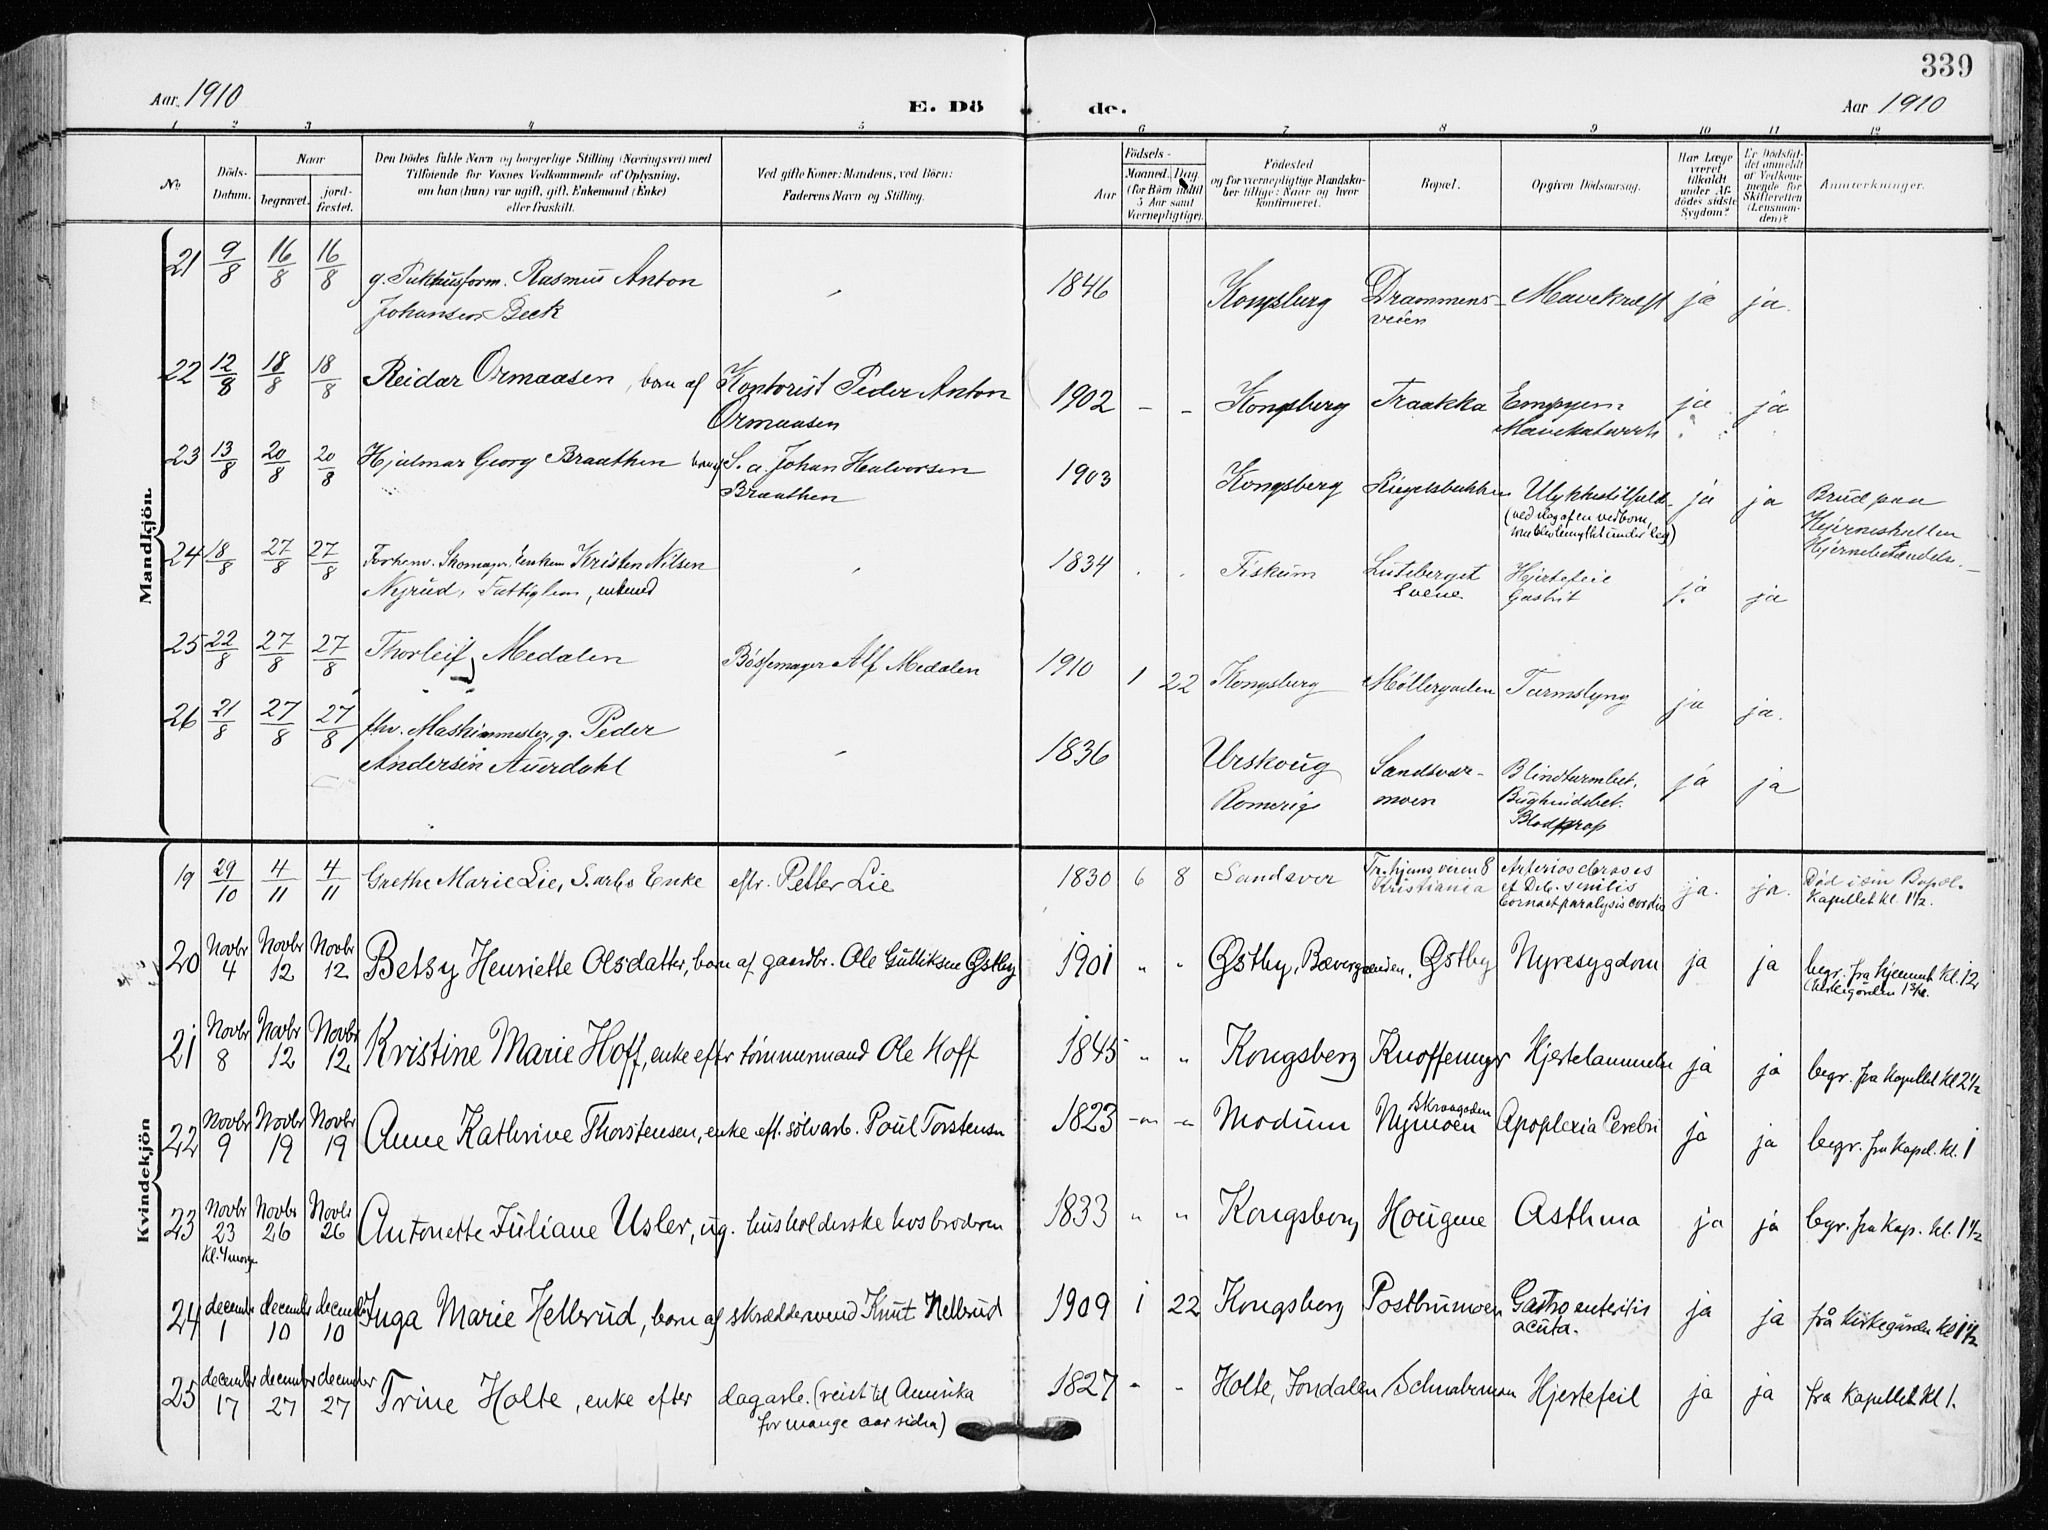 339
Aar 1910 E. Dö de. Aar 1910
1 2 3 4 5 6 7 8 9 10 11 12
No. Döds-Datum. Naar begravet. jord-fæstet. Den Dödes fulde Navn og borgerlige Stilling (Næringsvei) med Tilföiende for Voxnes Vedkommende af Oplysning, om han (hun) var ugift, gift, Enkemand (Enke) eller fraskilt. Ved gifte Koner: Mandens, ved Börn: Faderens Navn og Stilling. Födsels- Aar Maaned. Dag. (for Börn indtil 5 Aar samt Værnepligtige). Födested og for værnepligtige Mandskaber tillige: Naar og hvor konfirmeret. Bopæl. Opgiven Dödsaarsag. Har Læge været tilkaldt under Afdödes sidste Sygdom? Er Dödsfaldet anmeldt af Vedkommende for Skifteretten (Lensmanden)? Anmærkninger.
Mandkjön.
21 9/8 16/8 16/8 g. Rasmus Anton 1846 Kongsberg Drammens- Mavekræft ja ja.
Johansen Beck veien
22 12/8 18/8 18/8 Reidar Ormaasen, barn af Kontorist Peder Anton 1902 - - Kongsberg Traakka Empyem ja ja
Ormaasen Mavekatarrh
23 13/8 20/8 20/8 Hjalmar Georg Braathen S. a. Johan Halvorsen 1903 Kongsberg Ulykkestilfælde ja ja Brud paa
Braathen Hjerneskallen
24 18/8 27/8 27/8 Kristen Nilsen 1834 Fiskum Hjertefeil ja ja
Nyrud, Fattiglem, enkemd Gastrit
25 22/8 27/8 27/8 Thorleif Medalen Bössemager Alf Medalen 1910 1 22 Kongsberg Möllergaden Tarmslyng ja ja.
26 21/8 27/8 27/8 fhv. Maskinmester, g. Peder 1836 Urskoug Sandsvær- Blindtarmbet. ja ja
Andersen Auerdahl Romerig moen Bughindebet.
Blodprop
Kvindekjön
19 29/10 4/11 4/11 Grethe Marie Lie, S. arbs Enke eftr. Petter Lie 1830 6 8 Sandsver Kristiania Arteriosclerosis ja. ja. Död i sin Bopæl.
et Deb. senilis Kapellet kl. 1½.
paralysis cordis
20 Novbr 4 Novbr 12 Novbr 12 Betsy Henriette Olsdatter, barn af gaardbr. Ole Gulliksen Østby 1901 " " Østby, Bævergrenden, Østby Nyresygdom ja ja begr. fra hjemmet kl. 12
21 Novbr 8 Novbr 12 Novbr 12. Kristine Marie Hoff, enke efter tömmermand Ole Hoff 1845 " " Kongsberg Knoffemyr Hjertelammelse ja ja begr. fra kapellet kl 2½
22 Novbr 9 Novbr 19 Novbr 19 Anne Kathrine Thorstensen, enke eft. sölvarb. Poul Torstensen 1823 - - Modum Nymoen Apoplexia Cerebri ja ja begr. fra kapel. kl. 1
23 Novbr 23 Novbr 26 Novbr 26 Antonette Juliane Usler, ug. husholderske hos broderen 1833 " " Kongsberg Hougene Asthma ja ja begr. fra kap. kl. 1½
kl. 4 morg.
24 december 1 december 10 december 10 Inga Marie Hellerud, barn af skræddersvend Knut Hellerud 1909 1 22 Kongsberg Postbrumoen Gastro enteritis ja ja frå kirkegården kl 1½
acuta.
25 december 17 december 27 december 27 Trine Holte, enke efter dagarb. (reist til Amerika 1827 " " Holte, Jondalen Schnabermoen Hjertefeil ja ja fra kapellet kl 1.
for mange aar siden)